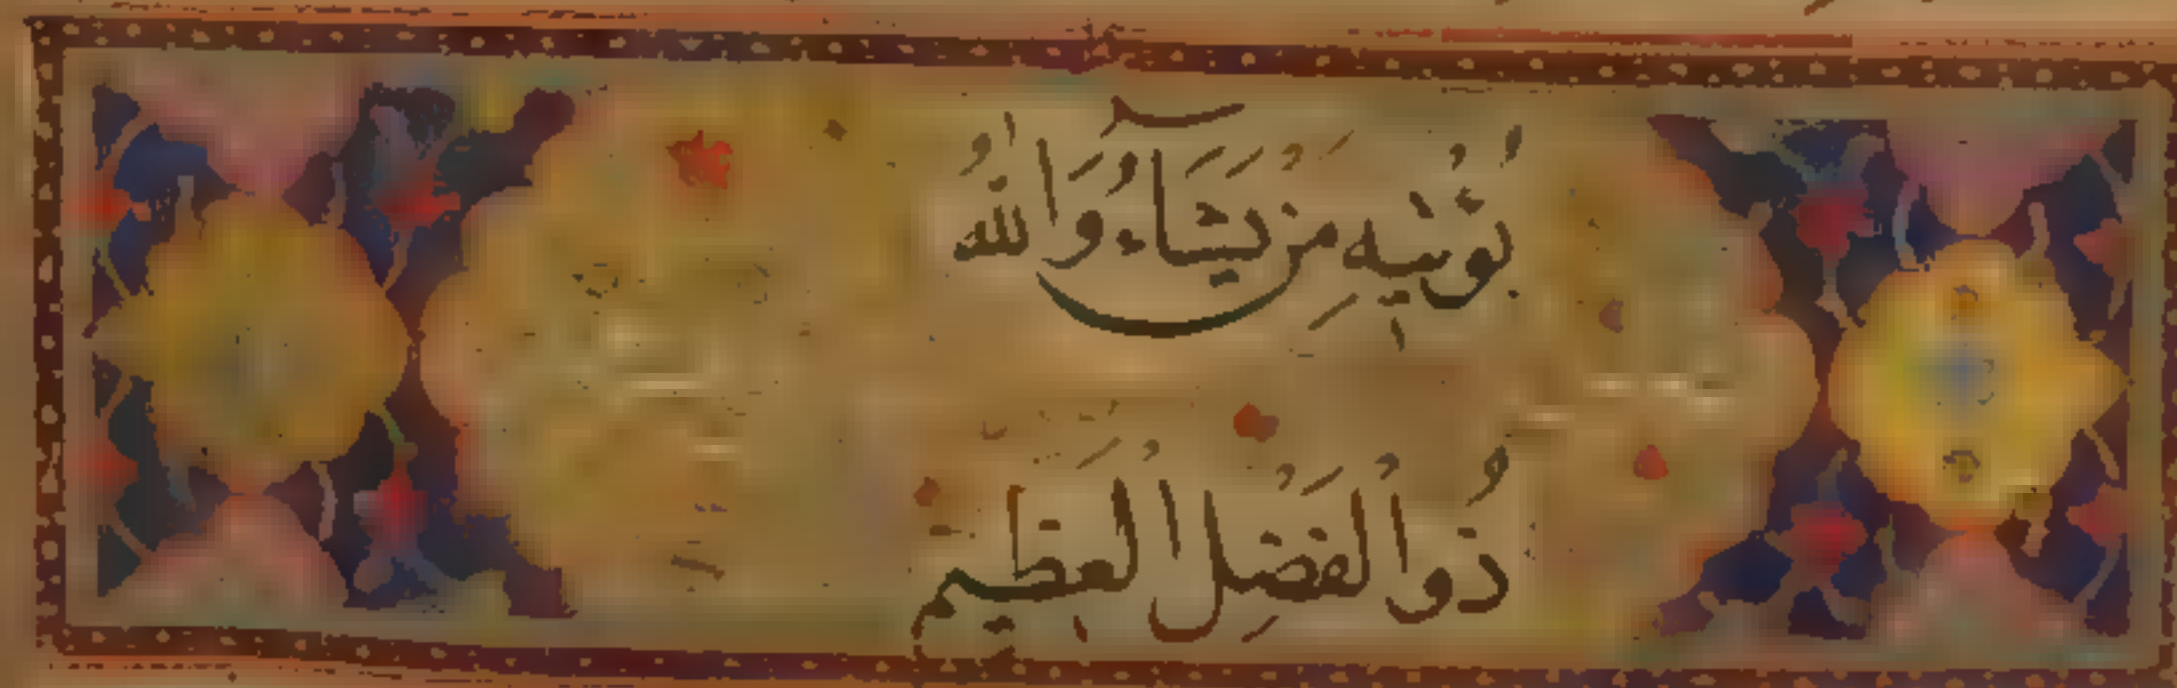 يُؤْتِيهِ مَنْ يَشَآءُ وَاللّٰهُ
ذُوا الْفَضْلِ الْعَظِيمِ